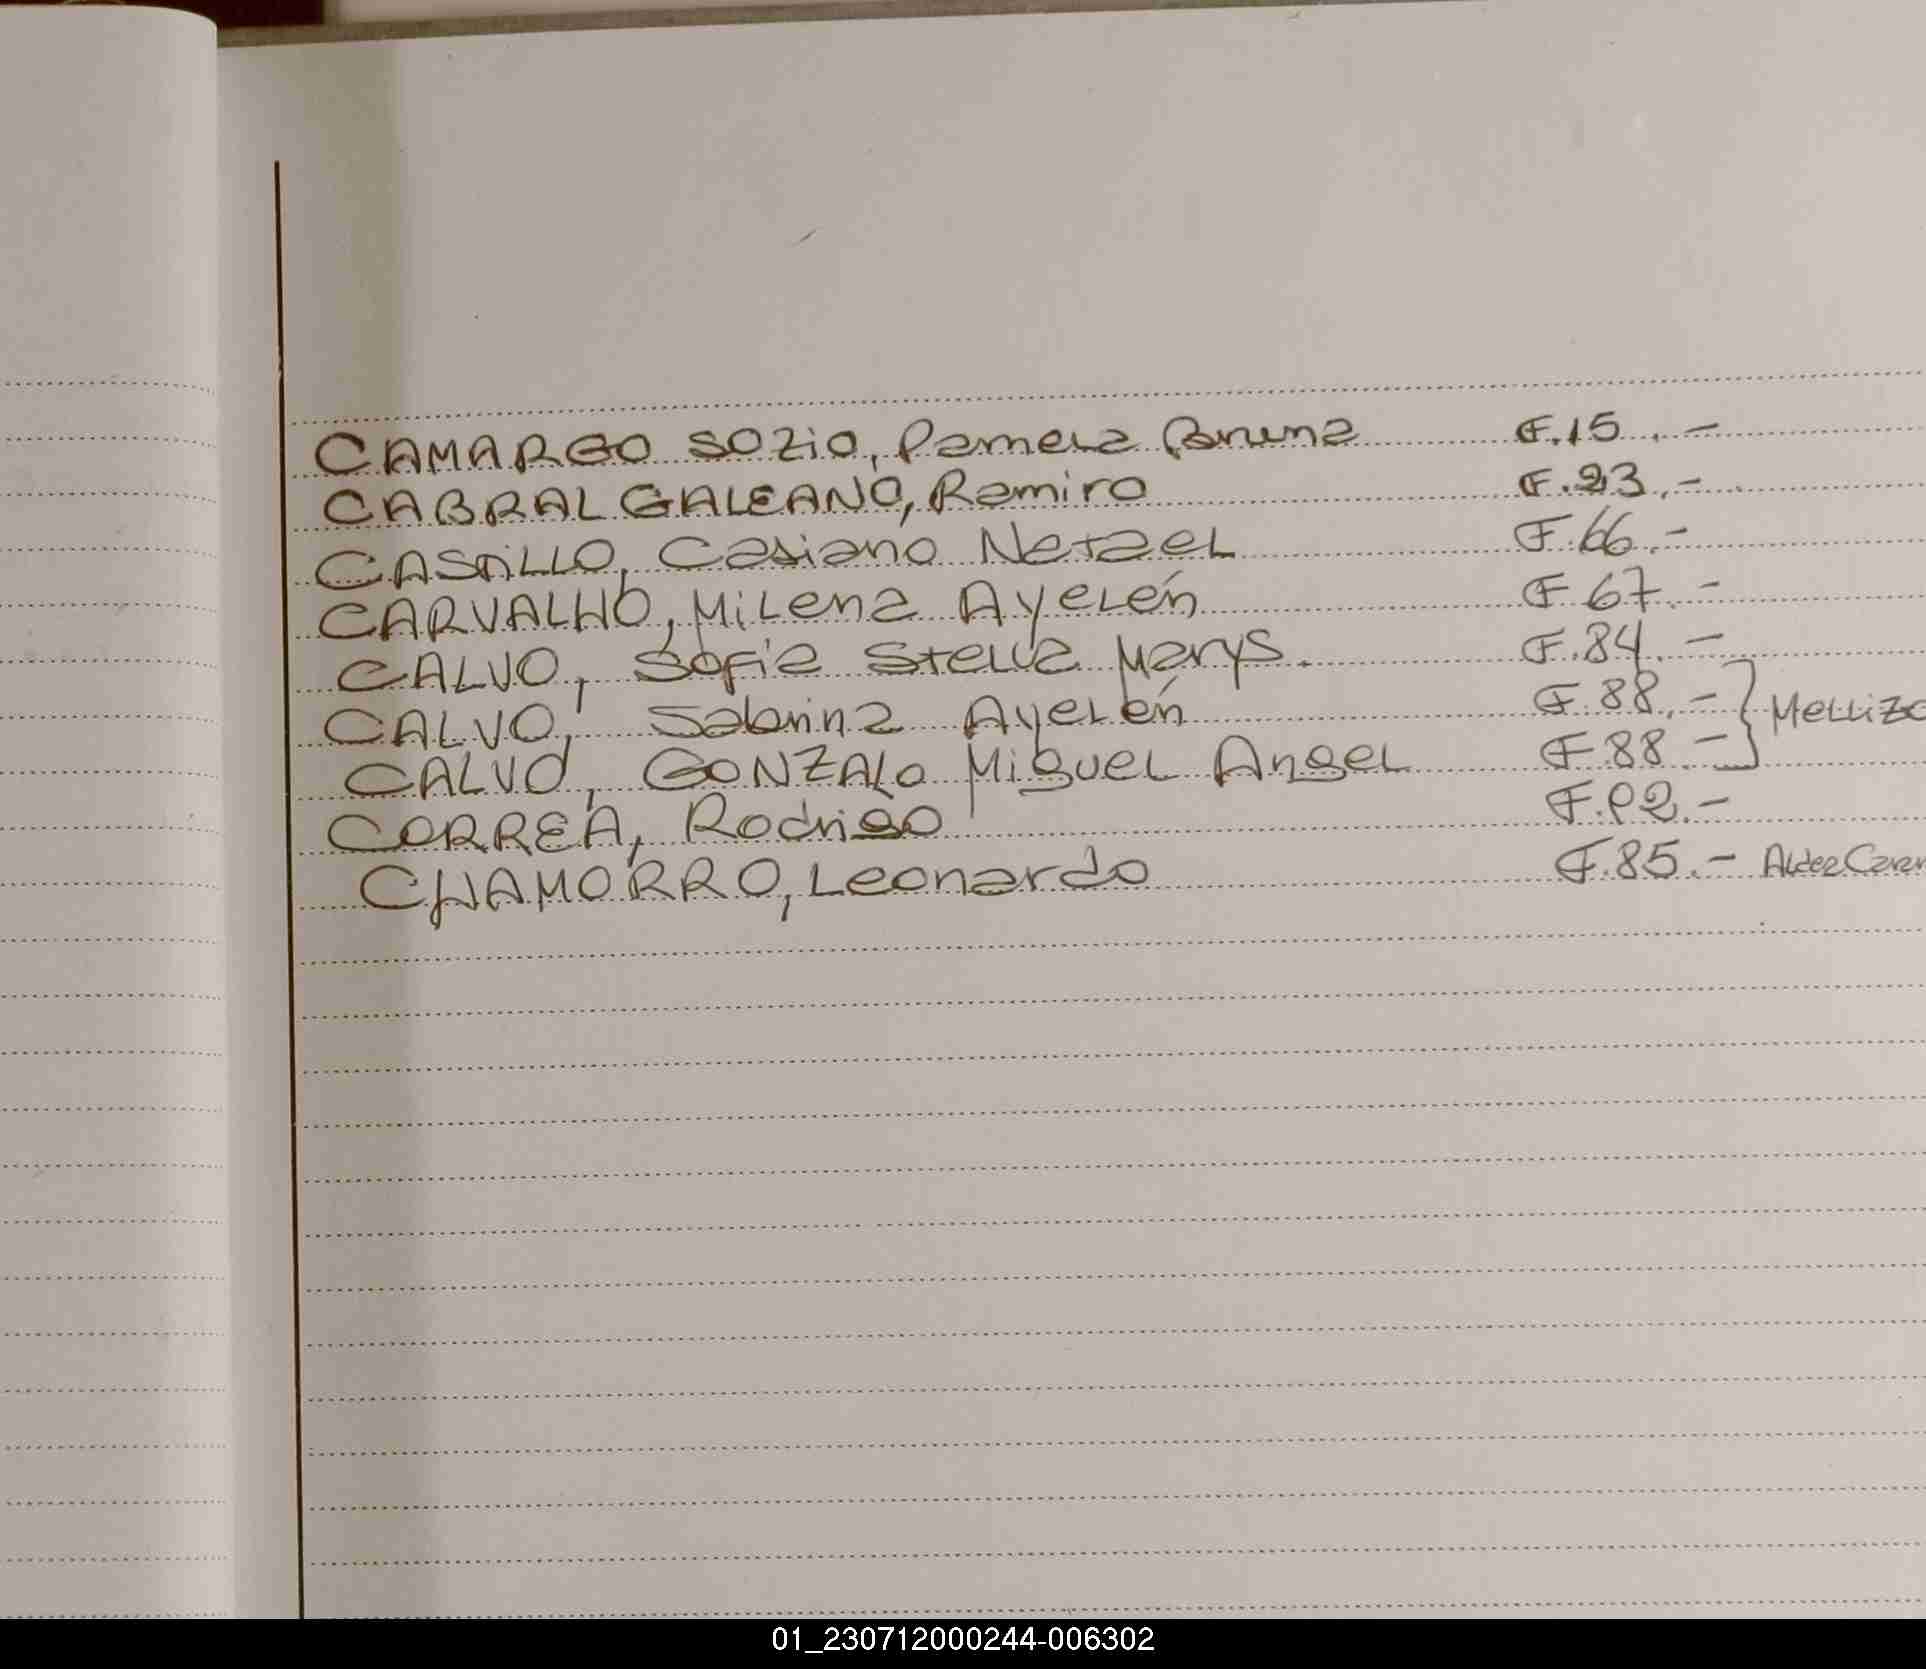 CAMARGO SOZIO, Pamela Bruna F.15.-
CABRAL GALEANO, Ramiro F.23.-
CASTILLO, Casiano Netael F.66.-
CARVALHO, Milena Ayelén F 67.-
CALVO, Sofia Stella Marys. F.84.-
CALVO, Sabrina Ayelén F.88.-
CALVO, GONZALO Miguel Angel F.88.- } Mellizo
CORREA, Rodrigo F.92.-
CHAMORRO, Leonardo F.85.- Aldea
01_230712000244-006302